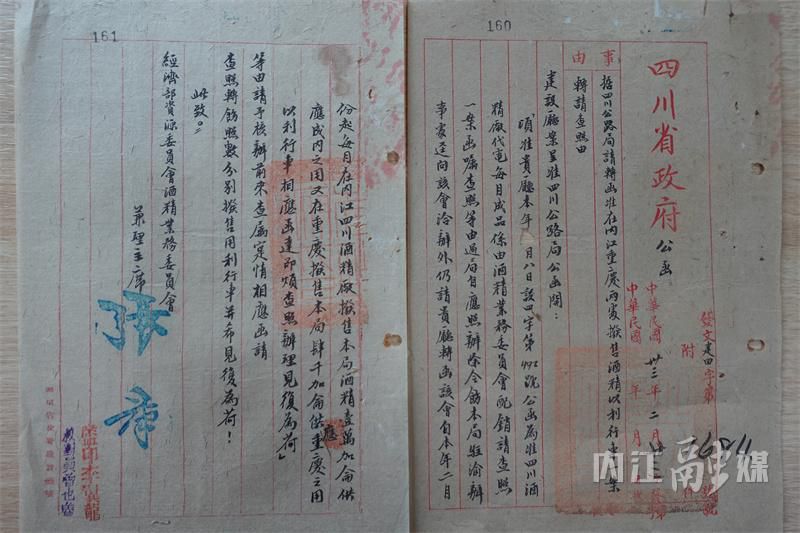 160
四川省政府公函
發文建四字第
號
附
件
中華民國卅三年二月
中華民國 年 月
事由
據四川公路局請轉函准在內江重慶兩處撥售酒精以利行車一案
轉請查照由
建設廳案呈准四川公路局公函開：
「頃准貴廳本年 月八日設四字第 號公函為准四川酒
精廠代電每月成品係由酒精業務委員會配銷請查照
一案函囑查照等由過局自應照辦除令飭本局駐渝辦
事處逕向該會洽辦外仍請貴廳轉函該會自本年二月
161
份起每月在內江四川酒精廠撥售本局酒精壹萬加侖供
應成內之用又在重慶撥售本局肆千加侖供應重慶之用
以利行車相應函達即煩查照辦理見復為荷」
等由請予核辦前來查屬實情相應函請
查照轉飭照數分別撥售用利行車并希見復為荷！
此致
經濟部資源委員會酒精業務委員會
兼理主席
張群
監印李
校對
内江融媒